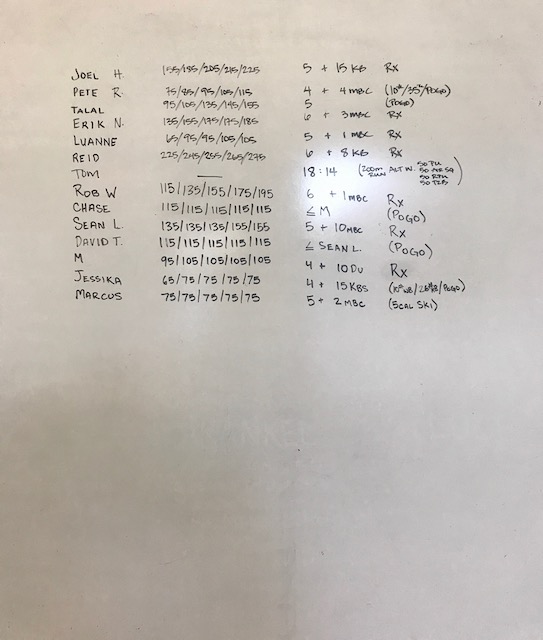 JOEL H. 155/185/205/215/225 5 + 15 KB Rx
PETE R. 75/85/95/105/115 4 + 4 MBC (10#/35#/POGO)
TALAL 95/105/135/145/155 5 (POGO)
ERIK N. 135/155/175/175/185 6 + 3 MBC Rx
LUANNE 65/95/95/105/105 5 + 1 MBC Rx
REID 225/245/255/265/275 6 + 8 KB Rx
TOM — 18:14 (200m RUN ALT W. 50 PU 50 AIR SQ 50
ROB W 115/135/155/175/195 6 + 1 MBC Rx
CHASE 115/115/115/115/115 ≤ M (POGO)
SEAN L. 135/135/135/155/155 5 + 10 MBC Rx
DAVID T. 115/115/115/115/115 ≤ SEAN L. (POGO)
M 95/105/105/105/105 4 + 10 DU Rx
JESSIKA 65/75/75/75/75 4 + 15 KBS
MARCUS 75/75/75/75/75 5 + 2 MBC (5CAL SKI)